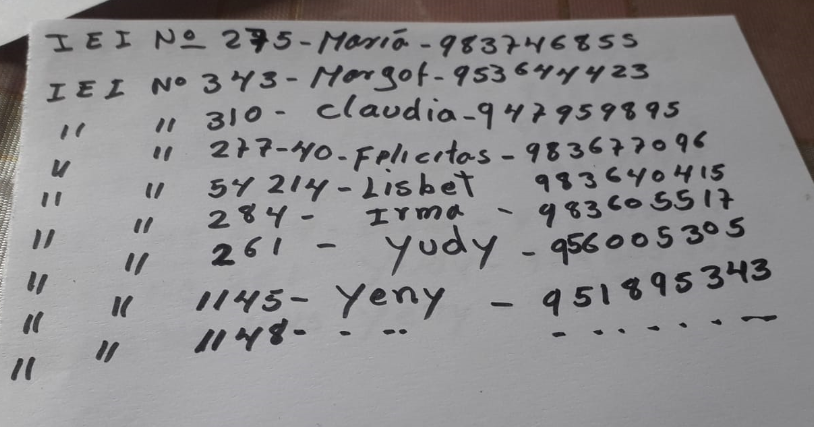 IEI Nº 275-María-983746855
IEI Nº 343-Margot-953644423
" " 310- Claudia-947959895
" " 277-40-Felicitas-983677096
" " 54214-Lisbet 983640415
" " 284- Irma - 983605517
" " 261 - Yudy-956005305
" " 1145- Yeny - 951895343
" " 1148- - -- - . . . . . —